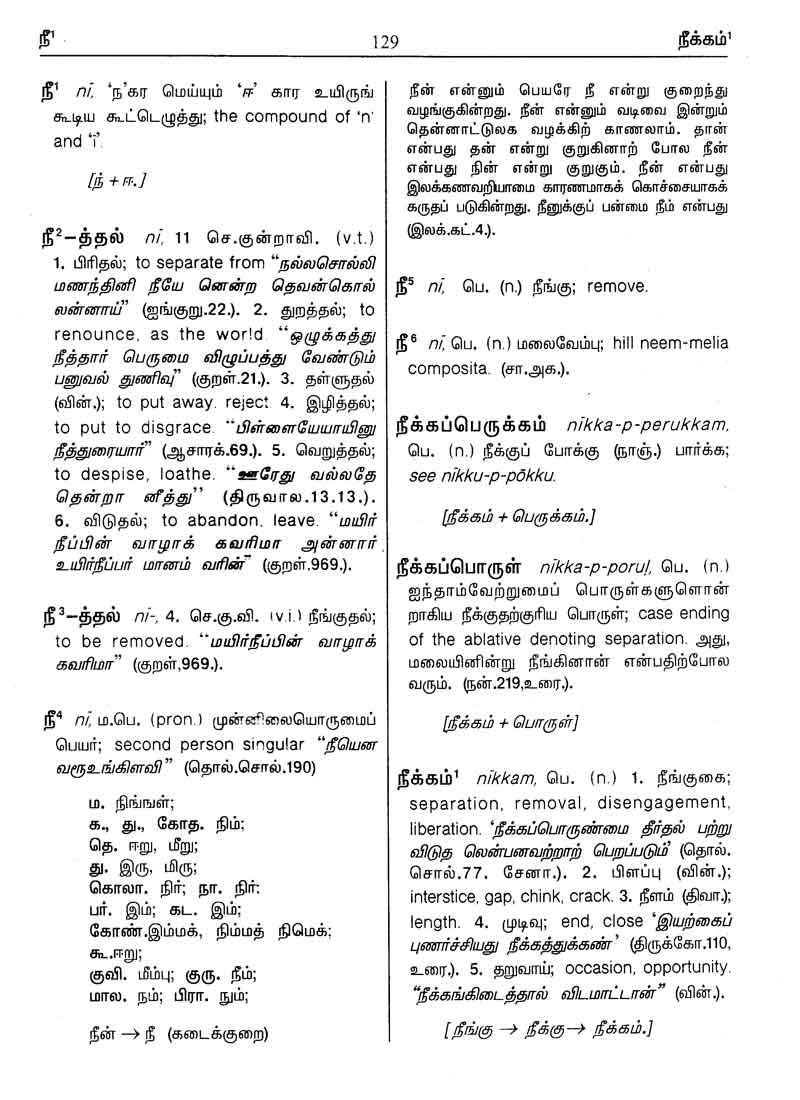 நீ¹
129
நீக்கம்¹
நீ¹ nī, 'ந'கர மெய்யும் 'ஈ' கார உயிருங்
கூடிய கூட்டெழுத்து; the compound of 'n'
and 'ī'.
[ந் + ஈ.]
நீ²–த்தல் nī, 11 செ.குன்றாவி. (v.t.)
1. பிரிதல்; to separate from “நல்லசொல்லி
மணந்தினி நீயே னென்ற தெவன்கொல்
லன்னாய்” (ஐங்குறு.22.). 2. துறத்தல்; to
renounce, as the world. “ஒழுக்கத்து
நீத்தார் பெருமை விழுப்பத்து வேண்டும்
பனுவல் துணிவு” (குறள்.21.). 3. தள்ளுதல்
(வின்.); to put away. reject 4. இழித்தல்;
to put to disgrace. “பிள்ளையேயாயினு
நீத்துரையார்” (ஆசாரக்.69.). 5. வெறுத்தல்;
to despise, loathe. “ஊரேது வல்லதே
தென்றா னீத்து” (திருவால.13.13.).
6. விடுதல்; to abandon, leave. “மயிர்
நீப்பின் வாழாக் கவரிமா அன்னார்
உயிர்நீப்பர் மானம் வரின்” (குறள்.969.).
நீ³–த்தல் nī-, 4. செ.கு.வி. (v.i.) நீங்குதல்;
to be removed. “மயிர்நீப்பின் வாழாக்
கவரிமா” (குறள்,969.).
நீ⁴ nī, ம.பெ. (pron.) முன்னிலையொருமைப்
பெயர்; second person singular “நீயென
வரூஉங்கிளவி” (தொல்.சொல்.190)
ம. நிங்ஙள்;
க., து., கோத. நிம்;
தெ. ஈறு, மீறு;
து. இரு, மிரு;
கொலா. நிர்; நா. நிர்:
பர். இம்; கட. இம்;
கோண்.இம்மக், நிம்மத் நிமெக்;
கூ.ஈறு;
குவி. மீம்பு; குரு. நீம்;
மால. நம்; பிரா. நும்;
நீன் → நீ (கடைக்குறை)
நீன் என்னும் பெயரே நீ என்று குறைந்து
வழங்குகின்றது. நீன் என்னும் வடிவை இன்றும்
தென்னாட்டுலக வழக்கிற் காணலாம். தான்
என்பது தன் என்று குறுகினாற் போல நீன்
என்பது நின் என்று குறுகும். நீன் என்பது
இலக்கணவறியாமை காரணமாகக் கொச்சையாகக்
கருதப் படுகின்றது. நீனுக்குப் பன்மை நீம் என்பது
(இலக்.கட்.4.).
நீ⁵ nī, பெ. (n.) நீங்கு; remove.
நீ⁶ nī, பெ. (n.) மலைவேம்பு; hill neem-melia
composita. (சா.அக.).
நீக்கப்பெருக்கம் nīkka-p-perukkam,
பெ. (n.) நீக்குப் போக்கு (நாஞ்.) பார்க்க;
see nīkku-p-pōkku.
[நீக்கம் + பெருக்கம்.]
நீக்கப்பொருள் nīkka-p-poruḷ, பெ. (n.)
ஐந்தாம்வேற்றுமைப் பொருள்களுளொன்
றாகிய நீக்குதற்குரிய பொருள்; case ending
of the ablative denoting separation. அது,
மலையினின்று நீங்கினான் என்பதிற்போல
வரும். (நன்.219,உரை.).
[நீக்கம் + பொருள்]
நீக்கம்¹ nīkkam, பெ. (n.) 1. நீங்குகை;
separation, removal, disengagement,
liberation. ‘நீக்கப்பொருண்மை தீர்தல் பற்று
விடுத லென்பனவற்றாற் பெறப்படும்’ (தொல்.
சொல்.77. சேனா.). 2. பிளப்பு (வின்.);
interstice, gap, chink, crack. 3. நீளம் (திவா.);
length. 4. முடிவு; end, close ‘இயற்கைப்
புணர்ச்சியது நீக்கத்துக்கண்’ (திருக்கோ.110,
உரை.). 5. தறுவாய்; occasion, opportunity.
“நீக்கங்கிடைத்தால் விடமாட்டான்” (வின்.).
[நீங்கு → நீக்கு→ நீக்கம்.]